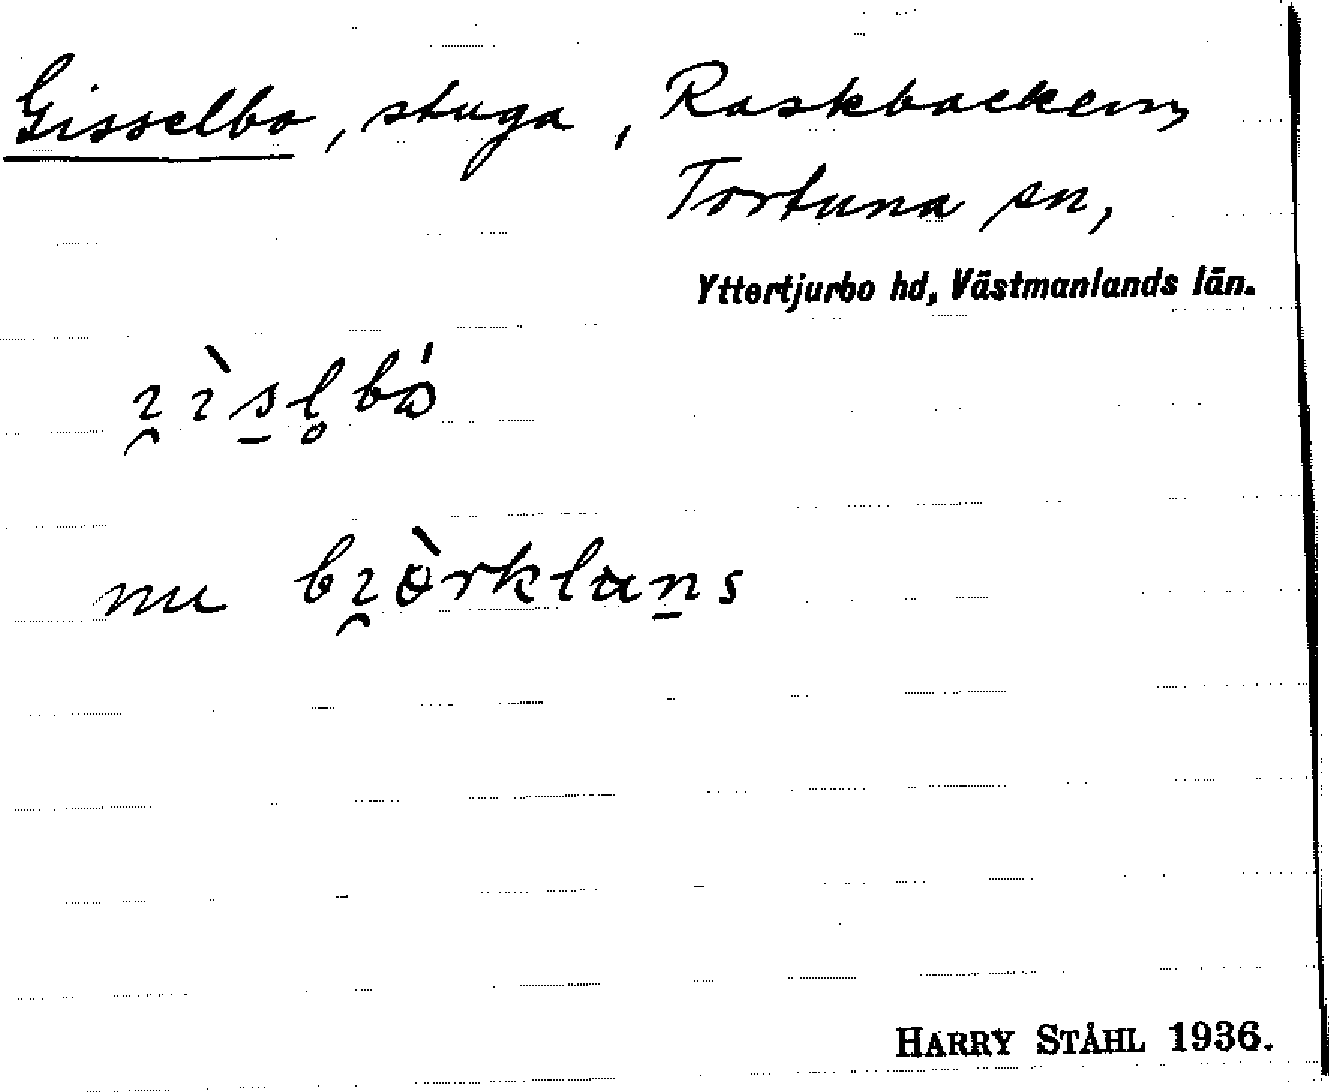 Gisselbo, stuga, Raskbacken,
Tortuna sn,
Yttertjurbo hd, Västmanlands län.
nu
HARRY STÅHL 1936.